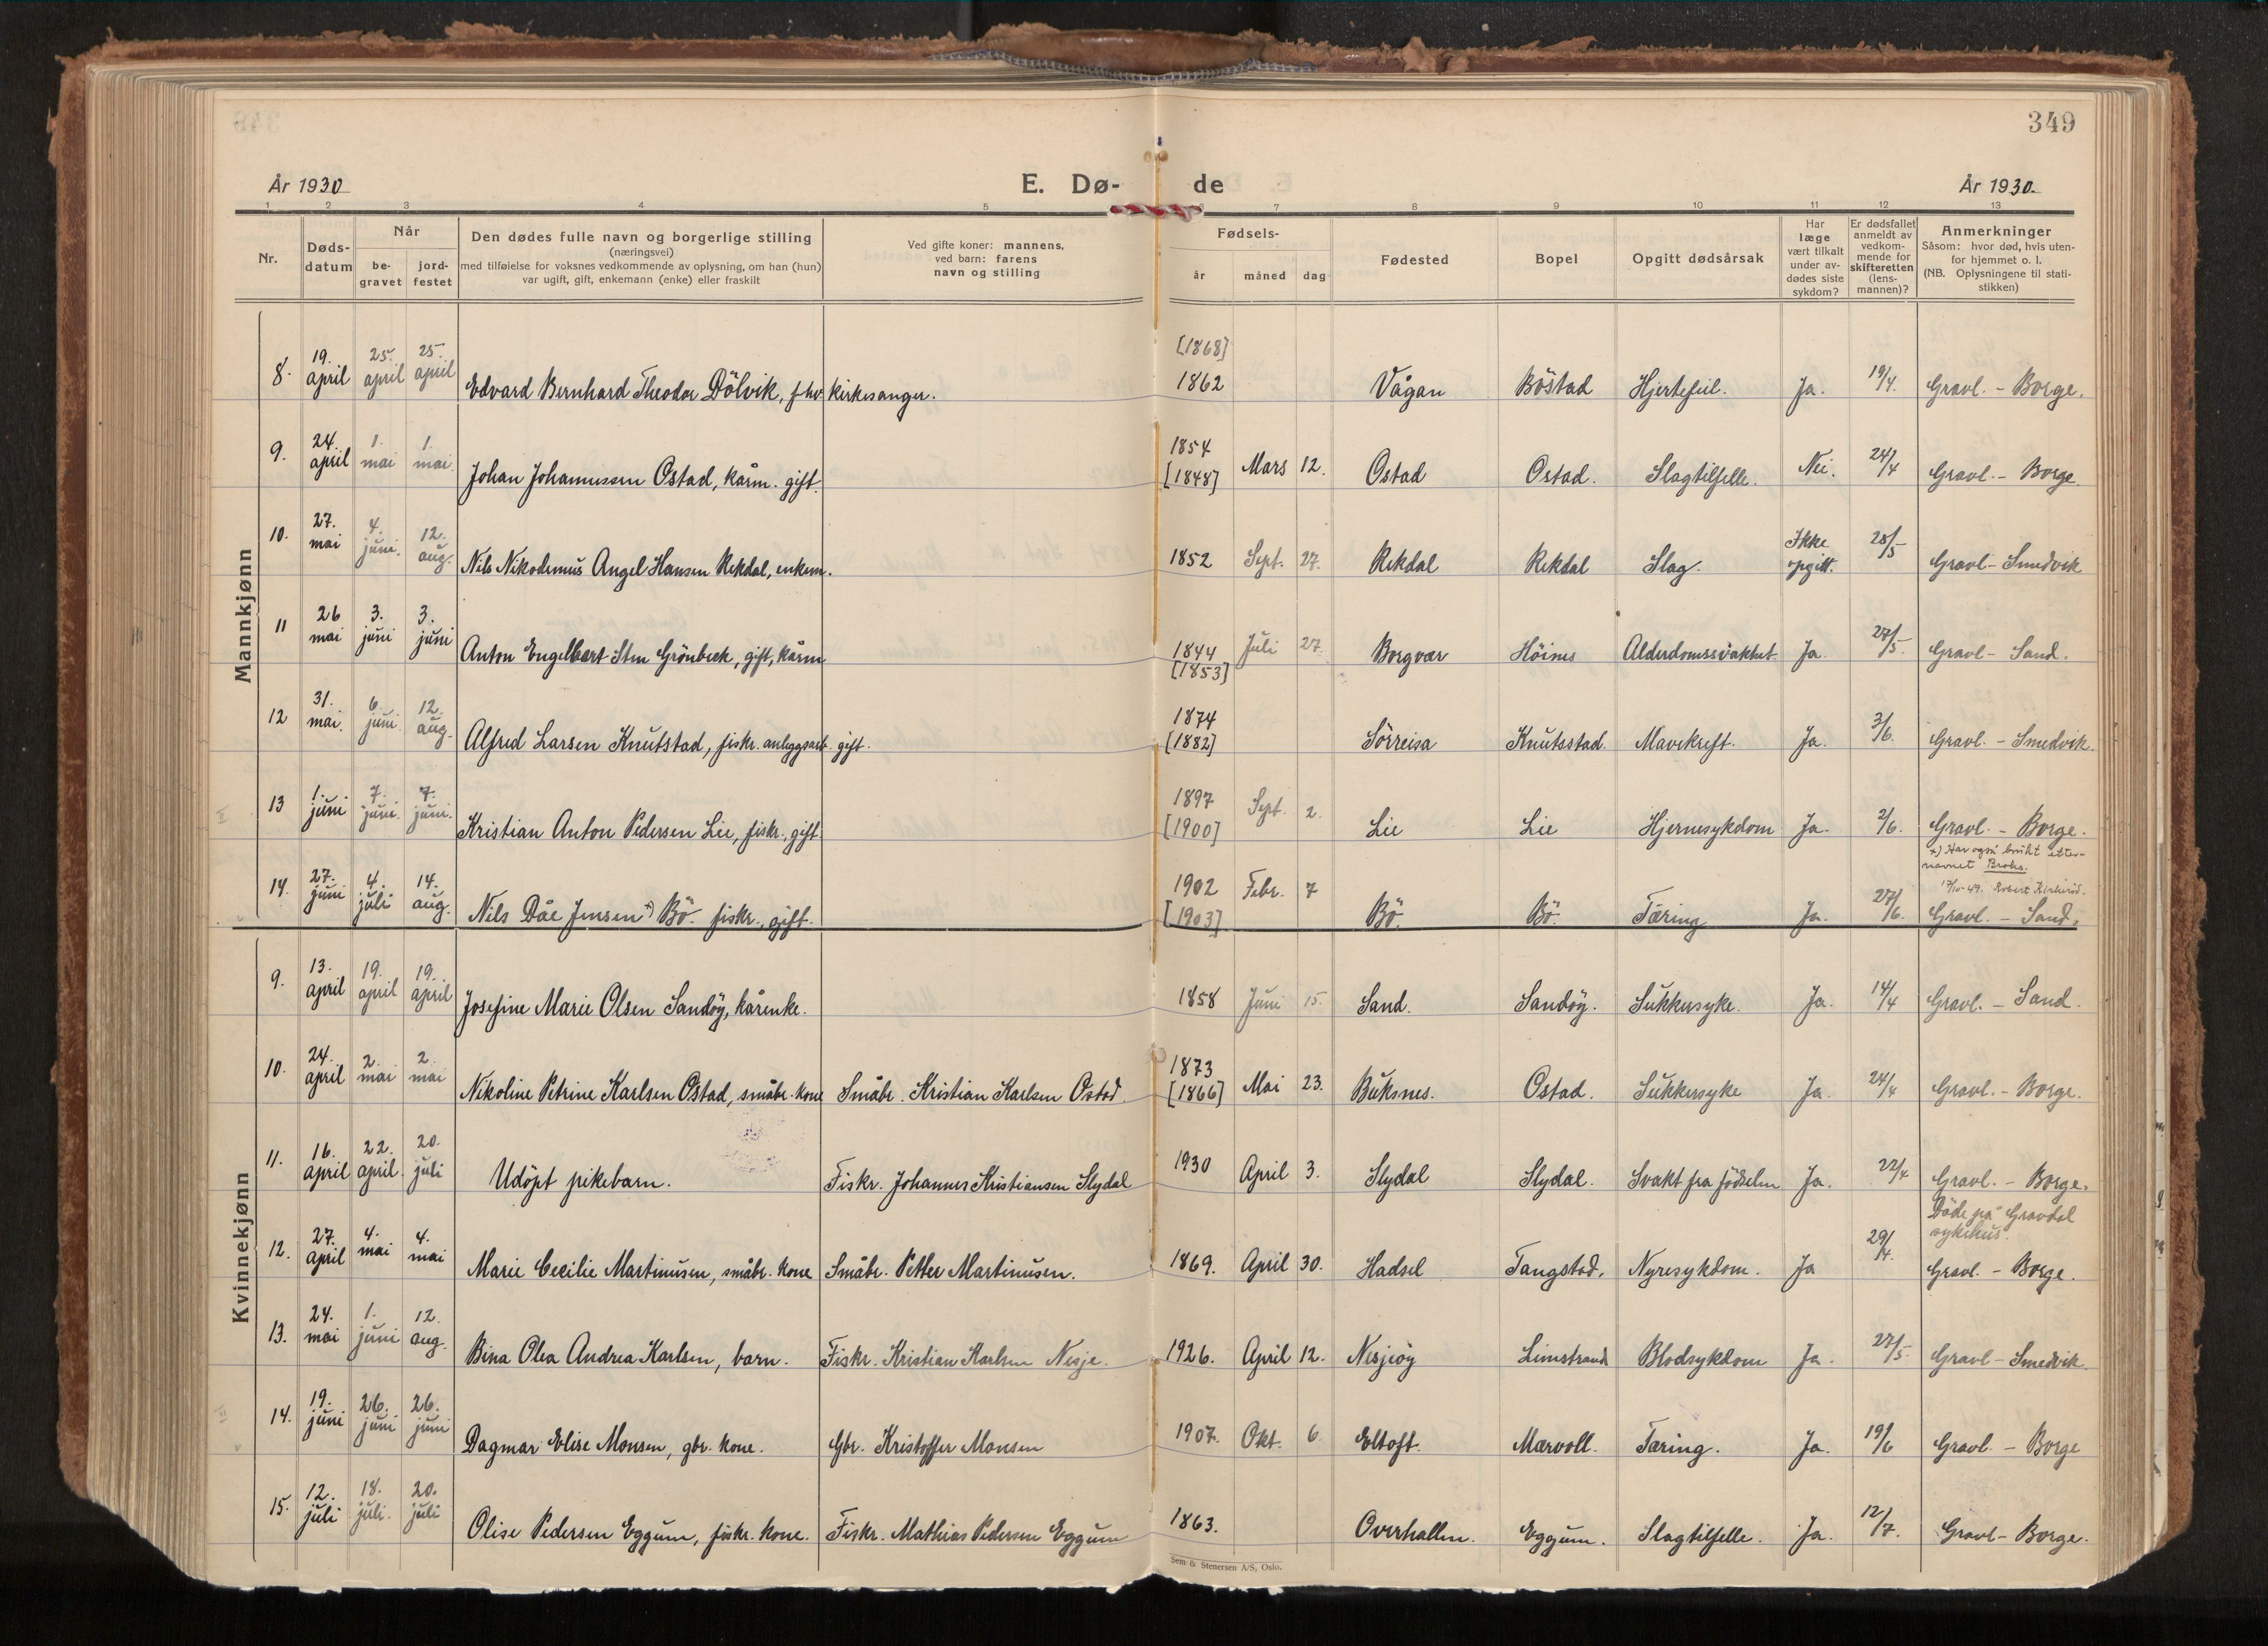 349
År 1930
E. Dø- de
År 1930.
1 2 3 4 5 6 7 8 9 10 11 12 13
Nr.
Døds-
datum
Når
be-
gravet
jord-
festet
Den dødes fulle navn og borgerlige stilling
(næringsvei)
med tilføielse for voksnes vedkommende av oplysning, om han (hun)
var ugift, gift, enkemann (enke) eller fraskilt
Ved gifte koner: mannens,
ved barn: farens
navn og stilling
Fødsels-
år måned dag
Fødested
Bopel
Opgitt dødsårsak
Har
læge
vært tilkalt
under av-
dødes siste
sykdom?
Er dødsfallet
anmeldt av
vedkom-
mende for
skifteretten
(lens-
mannen)?
Anmerkninger
Såsom: hvor død, hvis uten-
for hjemmet o. l.
(NB. Oplysningene til stati-
stikken)
Mannkjønn
19. 25. 25. [1868]
8. april april april Edvard Bernhard Theodor Dölvik, fhv. kirkesanger. 1862 Vågan Böstad Hjertefeil. Ja. 19/4. Gravl. - Borge.
24. 1. 1. 1854
9. april mai mai Johan Johannessen Ostad, kårm. gift. [1848] Mars 12. Ostad Ostad. Slagtilfelle. Nei. 24/4 Gravl. - Borge.
27. 4. 12. Ikke
10. mai juni. aug. Nils Nikodemus Angel Hansen Rekdal, enkem. 1852 Sept. 27. Rekdal Rekdal Slag. opgitt. 28/5 Gravl - Smedvik
26 3. 3.
11 mai juni juni Anton Engelbert Stm Grönbeck, gift, kårm 1844 Juli 27. Borgvær Höines Alderdomssvakhet Ja. 27/5. Gravl - Sand.
[1853]
31. 6. 12. 1874
12 mai. juni aug. Alfred Larsen Knutstad, fiskr. anleggsarb. gift. [1882] Sörreisa Knutsstad. Mavekreft. Ja. 3/6. Gravl. - Smedvik.
1. 7. 7. 1897
13 juni juni. juni. Kristian Anton Pedersen Lie, fiskr., gift. [1900] Sept. 2. Lie Lie Hjernesykdom Ja. 2/6. Gravl. - Borge.
+) Har også brukt etter-
navnet Broks.
17/10-49. Robert Kirkeröd.
27. 4. 14. 1902
14. juni juli aug. Nils Dåe Jensen +) Bö. fiskr., gift. [1903] Febr. 7 Bö. Bö. Tæring Ja. 27/6. Gravl. - Sand.
Kvinnekjønn
13. 19. 19.
9. april april april Josefine Marie Olsen Sandöy, kårenke. 1858 Juni 15. Sand. Sandöy. Sukkersyke. Ja. 14/4 Gravl. - Sand.
24. 2. 2. 1873
10. april mai mai Nikoline Petrine Karlsen Ostad, småbr. kone Småbr. Kristian Karlsen Ostad [1866] Mai 23. Buksnes. Ostad. Sukkersyke Ja. 24/4 Gravl. - Borge.
16. 22. 20.
11. april april. juli Udöpt pikebarn. Fiskr. Johannes Kristiansen Slydal 1930 April 3. Slydal Slydal. Svakt fra födselen Ja. 22/4 Gravl. - Borge.
Döde på Gravdal
sykehus.
27. 4. 4.
12. april mai mai Marie Cecilie Martinusen, småbr. kone Småbr. Petter Martinusen. 1869. April 30. Hadsel Tangstad. Nyresykdom. Ja 29/4. Gravl. - Borge.
24. 1. 12.
13. mai juni aug. Bina Olea Andrea Karlsen, barn. Fiskr. Kristian Karlsen Nesje. 1926. April 12. Nesjeöy Limstrand Blodsykdom Ja. 27/5. Gravl - Smedvik.
19. 26. 26.
14. juni juni juni Dagmar Elise Monsen, gbr. kone. Gbr. Kristoffer Monsen 1907. Okt. 6. Eltoft. Mærvoll. Tæring. Ja. 19/6 Gravl. - Borge
12. 18. 20.
15. juli juli. juli Olise Pedersen Eggum, fiskr. kone. Fiskr. Mathias Pedersen Eggum 1863. Overhallen. Eggum. Slagtilfelle. Ja. 12/7. Gravl - Borge.
Sem & Stenersen A/S, Oslo.